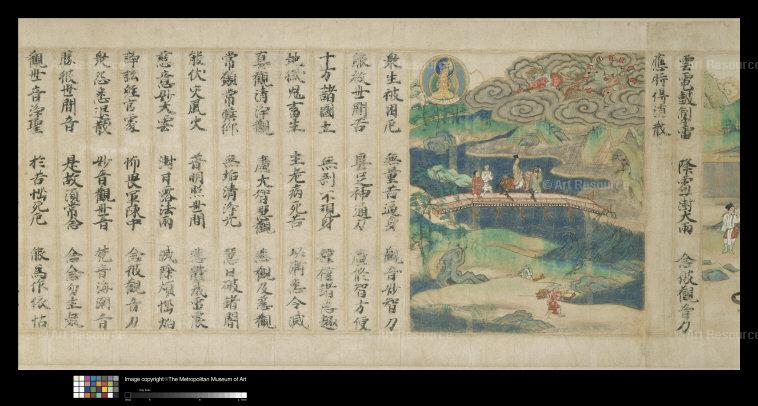 雲雷鼓掣電 降雹澍大雨 念彼觀音力
應時得消散
衆生被困厄 無量苦逼身 觀音妙智力
能救世間苦 具足神通力 廣修智方便
十方諸國土 無刹不現身 種種諸惡趣
地獄鬼畜生 生老病死苦 以漸悉令滅
真觀清淨觀 廣大智慧觀 悲觀及慈觀
常願常瞻仰 無垢清淨光 慧日破諸闇
能伏災風火 普明照世間 悲體戒雷震
慈意妙大雲 澍甘露法雨 滅除煩惱焰
諍訟經官處 怖畏軍陣中 念彼觀音力
衆怨悉退散 妙音觀世音 梵音海潮音
勝彼世間音 是故須常念 念念勿生疑
觀世音淨聖 於苦惱死厄 能爲作依怙
Image copyright © The Metropolitan Museum of Art
© Art Resource